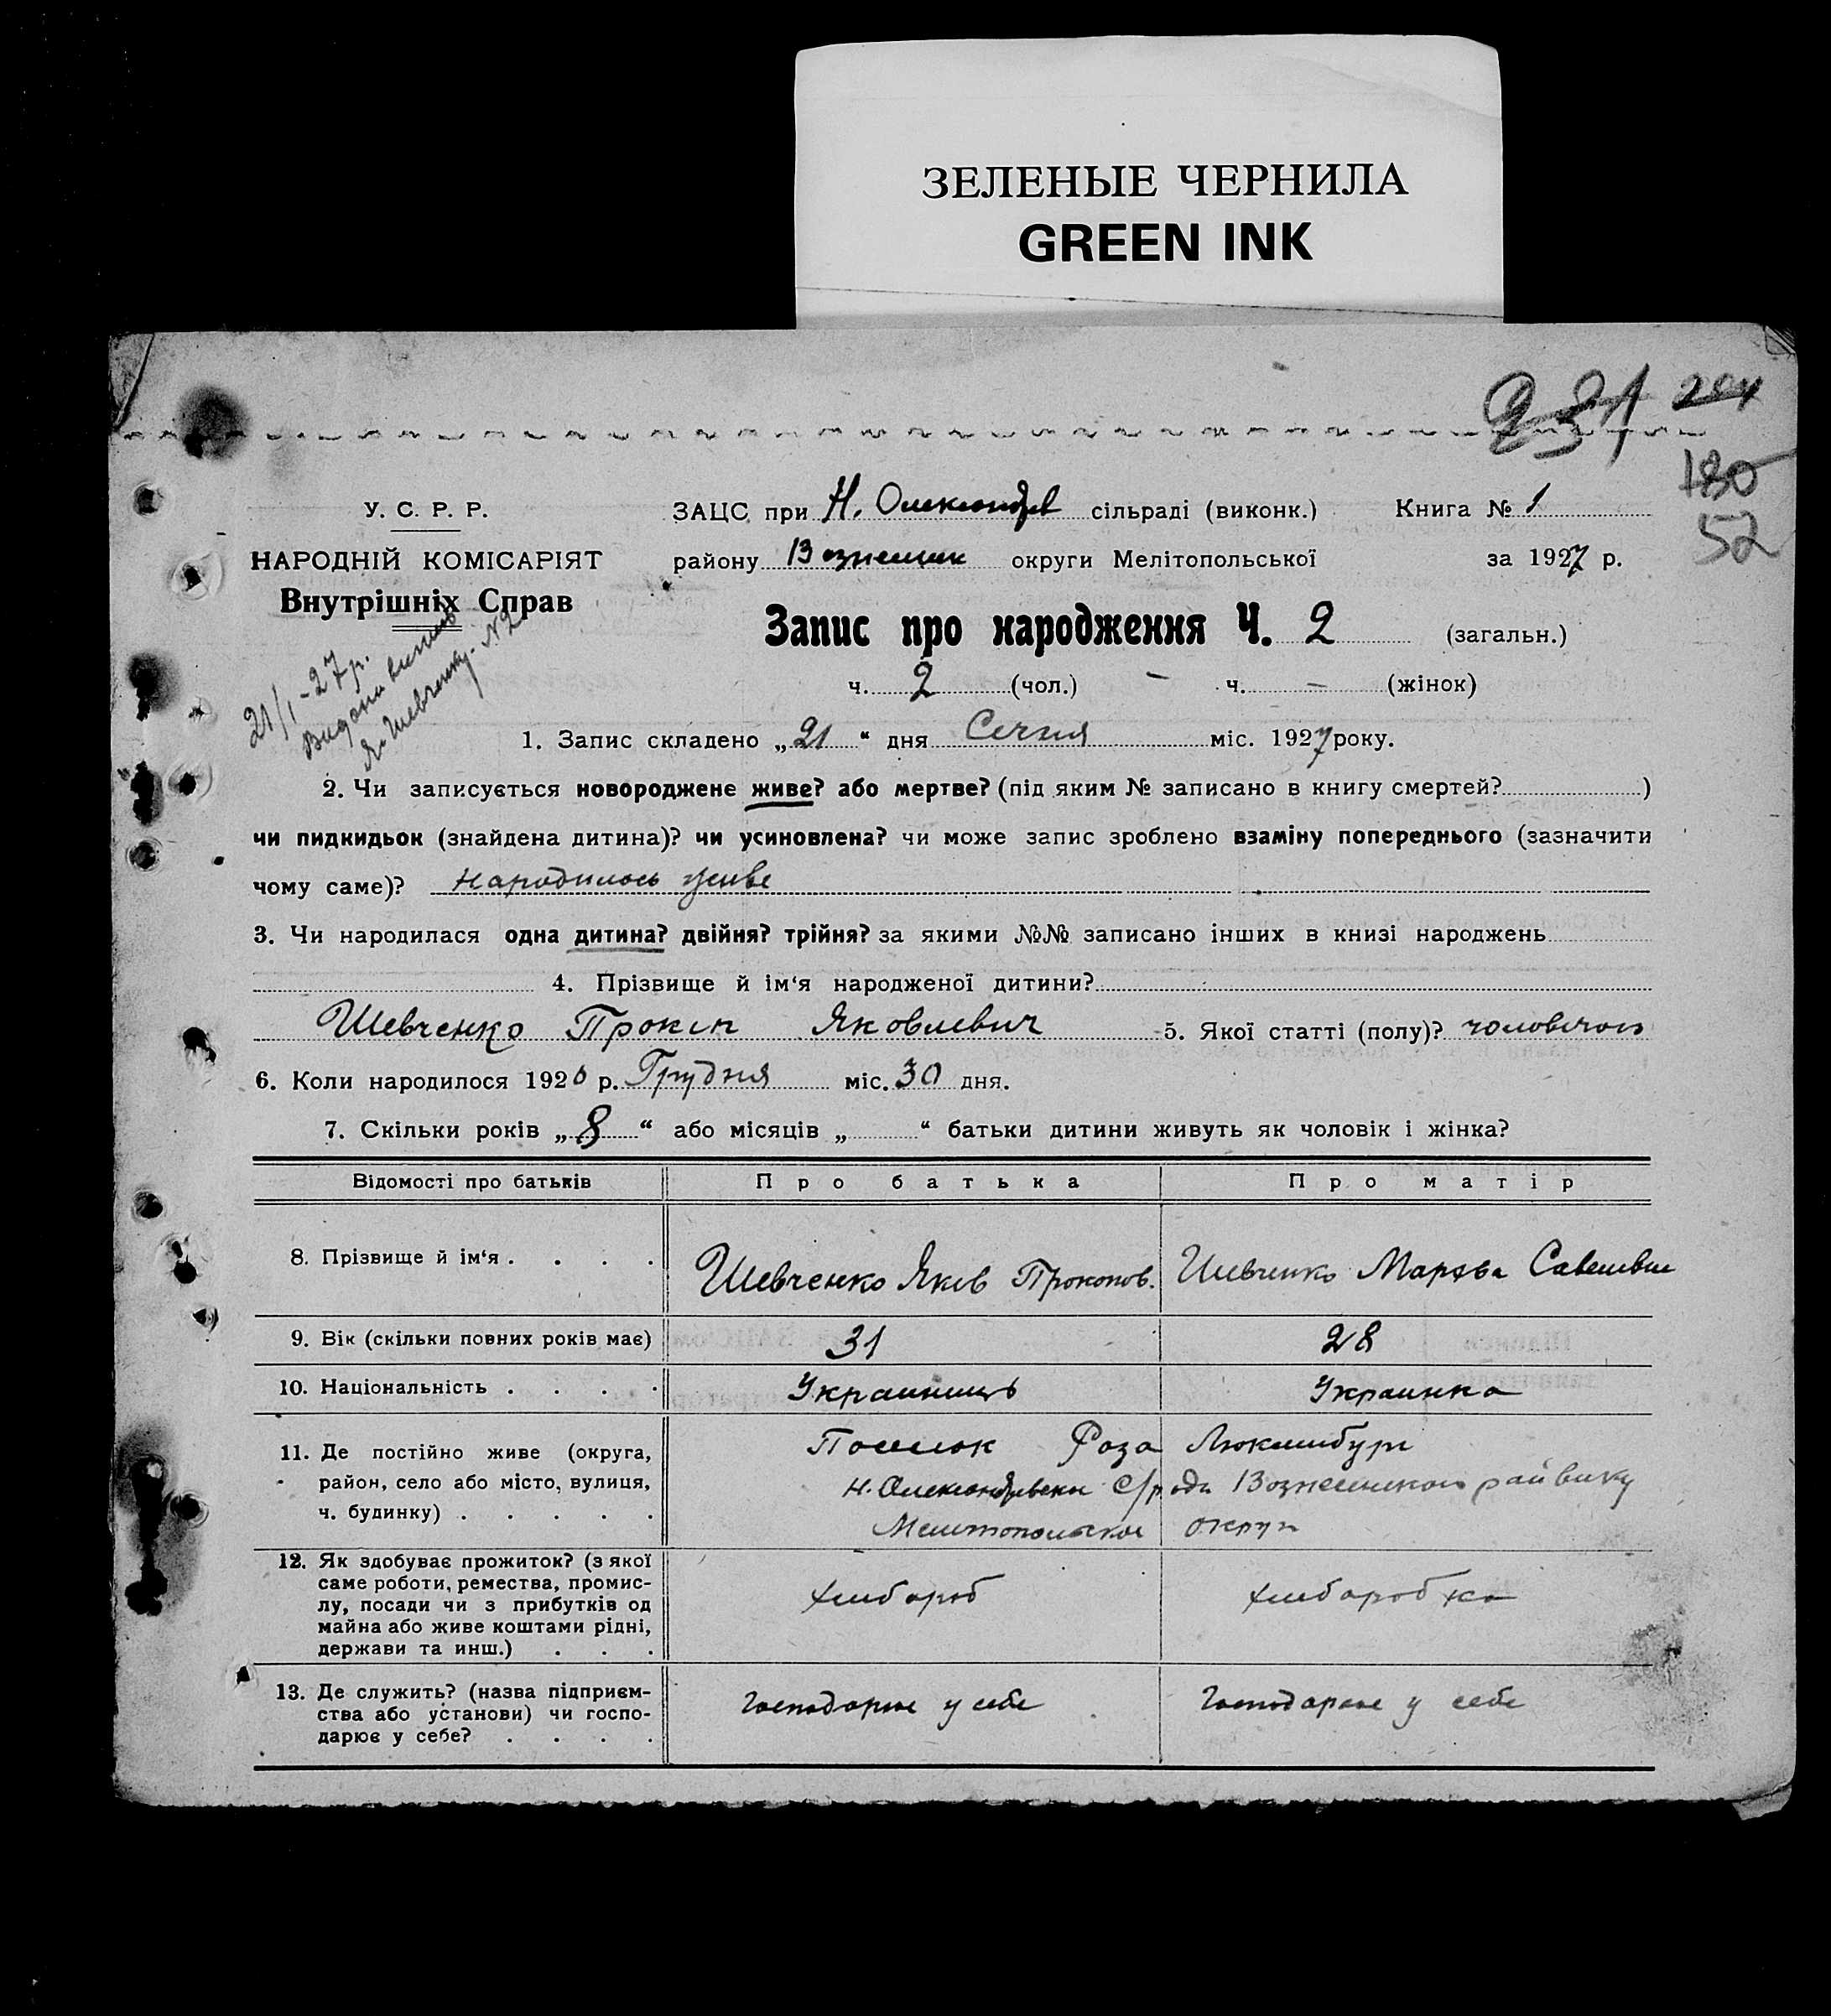 ЗЕЛЕНЫЕ ЧЕРНИЛА
GREEN INK
204
180
52
У. С. Р. Р.
НАРОДНІЙ КОМІСАРІЯТ
Внутрішніх Справ
21/I-27 р.
Видани
Я. Шевченку. №2
ЗАЦС при Н. Олександрв сільраді (виконк.) Книга № 1
району Вознесенк округи Мелітопольської за 1927 р.
Запис про народження Ч. 2 (загальн.)
ч. 2 (чол.) – ч. – (жінок)
1. Запис складено „21“ дня Січня міс. 1927 року.
2. Чи записується новороджене живе? або мертве? (під яким № записано в книгу смертей? )
чи пидкидьок (знайдена дитина)? чи усиновлена? чи може запис зроблено взаміну попереднього (зазначити
чому саме)? Народилось живе
3. Чи народилася одна дитина? двійня? трійня? за якими №№ записано інших в книзі народжень
4. Прізвище й ім‘я народженої дитини?
Шевченко Прокіп Яковлевич 5. Якої статті (полу)? чоловічої
6. Коли народилося 1926 р. Грудня міс. 30 дня.
7. Скільки років „8“ або місяців „ “ батьки дитини живуть як чоловік і жінка?
Відомості про батьків Про батька Про матір
8. Прізвище й ім‘я . . . . Шевченко Яків Прокопов. Шевченко Марфа
9. Вік (скільки повних років має) 31 28
10. Національність . . . . Украинець Украинка
11. Де постійно живе (округа, Посілок Роза Люксимбург
район, село або місто, вулиця, Н. Олександрвськи с/ради Вознесенского райвику
ч. будинку) . . . . . Мелитопольскої округи
12. Як здобуває прожиток? (з якої
саме роботи, ремества, промис-
лу, посади чи з прибутків од хлібороб хліборобка
майна або живе коштами рідні,
держави та инш.) . . .
13. Де служить? (назва підприєм-
ства або установи) чи госпо- Господарює у себе Господарює у себе
дарює у себе? . . . .